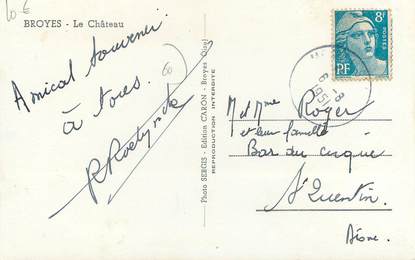 10 €
BROYES - Le Château
Amical souvenir
à tous.
Photo SERGIS - Edition CARON - Broyes (Oise)
REPRODUCTION INTERDITE
8F
POSTES
RF
M et Mme Roger
et leur famille
Bar du cirque
St Quentin
Aisne.